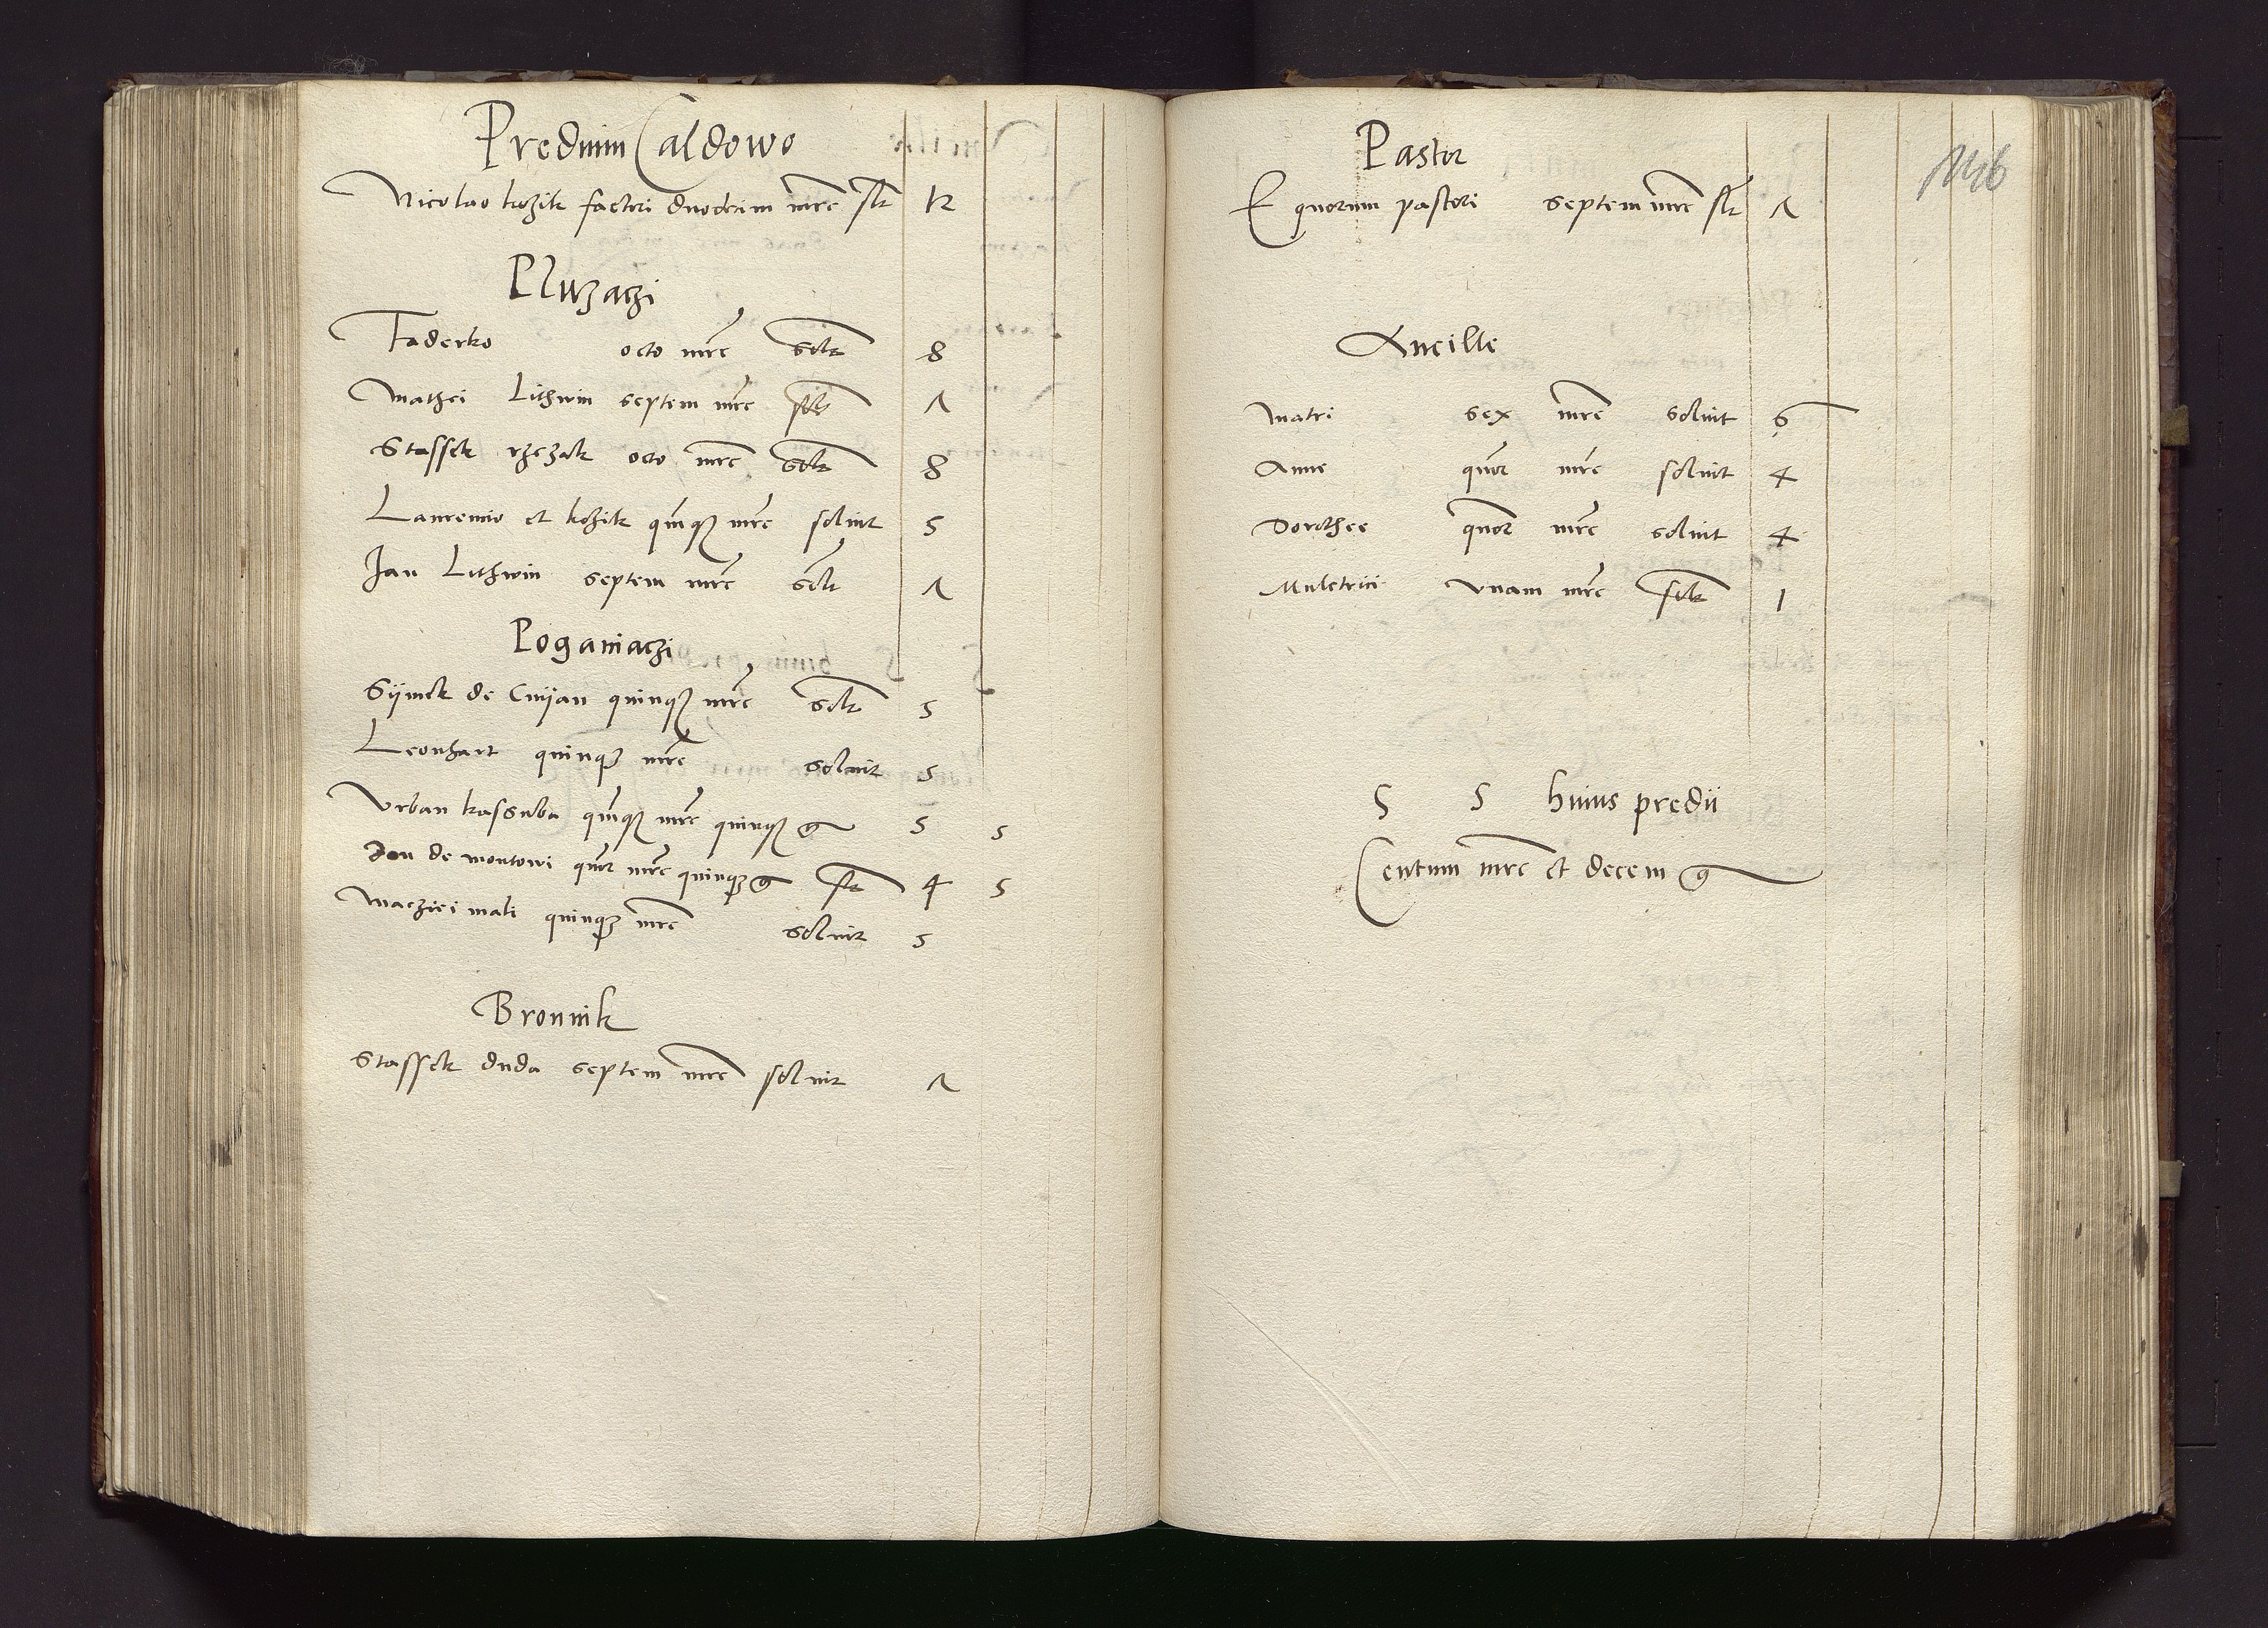 Predium Caldowo
Nicolao kozik factori duodecim mrc solt 12
Pluzaczi
Faderko octo mrc solt 8
Mathei Lithwin septem mrc solt 7
Stassek rzezak octo mrc solt 8
Laurencio et kozik quinque mrc soluit 5
Jan Lithwin septem mrc solt 7
Poganiaczi
Sijmek de Cuijan quinque mrc solt 5
Leonhart quinque mrc soluit 5
Vrban kassuba quinque mrc quinque g 5 5
Jan de montowi quor mrc quinque g solt 4 5
Macziei mali quinque mrc soluit 5
Bronnik
Stassek duda septem mrc soluit 7
146
Pastor
Equorum pastori septem mrc solt 7
Ancille
Matri sex mrc soluit 6
Anne quor mrc soluit 4
Dorothee quor mrc soluit 4
Muletrici vnam mrc solt 1
S S huius predii
Centum mrc et decem g